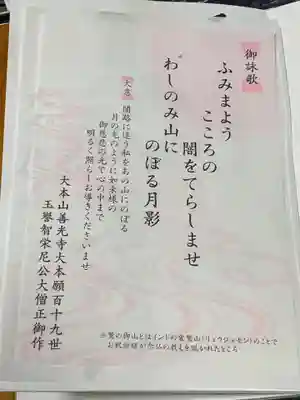 御詠歌
ふみまよう
こころの
闇をてらしませ
わしのみ山に
のぼる月影
大意
闇路に迷う私をあの山にのぼる
月の光のように如来様の
御慈悲の光で心の中まで
明るく照らしお導きくださいませ
大本山善光寺大本願百十九世
玉誉智栄尼公大僧正御作
※鷲の御山とはインドの霊鷲山(リョウジュセン)のことで
お釈迦様が念仏の教えを説かれたところ